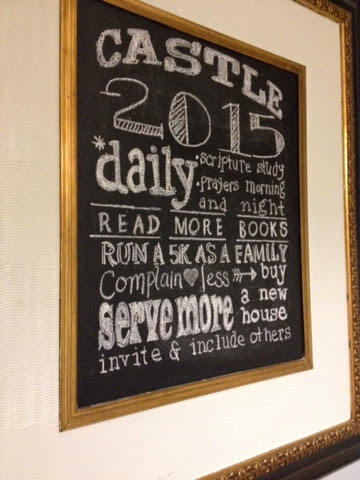 CASTLE
2015
*daily: scripture study
prayers morning
and night
READ MORE BOOKS
RUN A 5K AS A FAMILY
Complain less buy
serve more a new
house
invite & include others